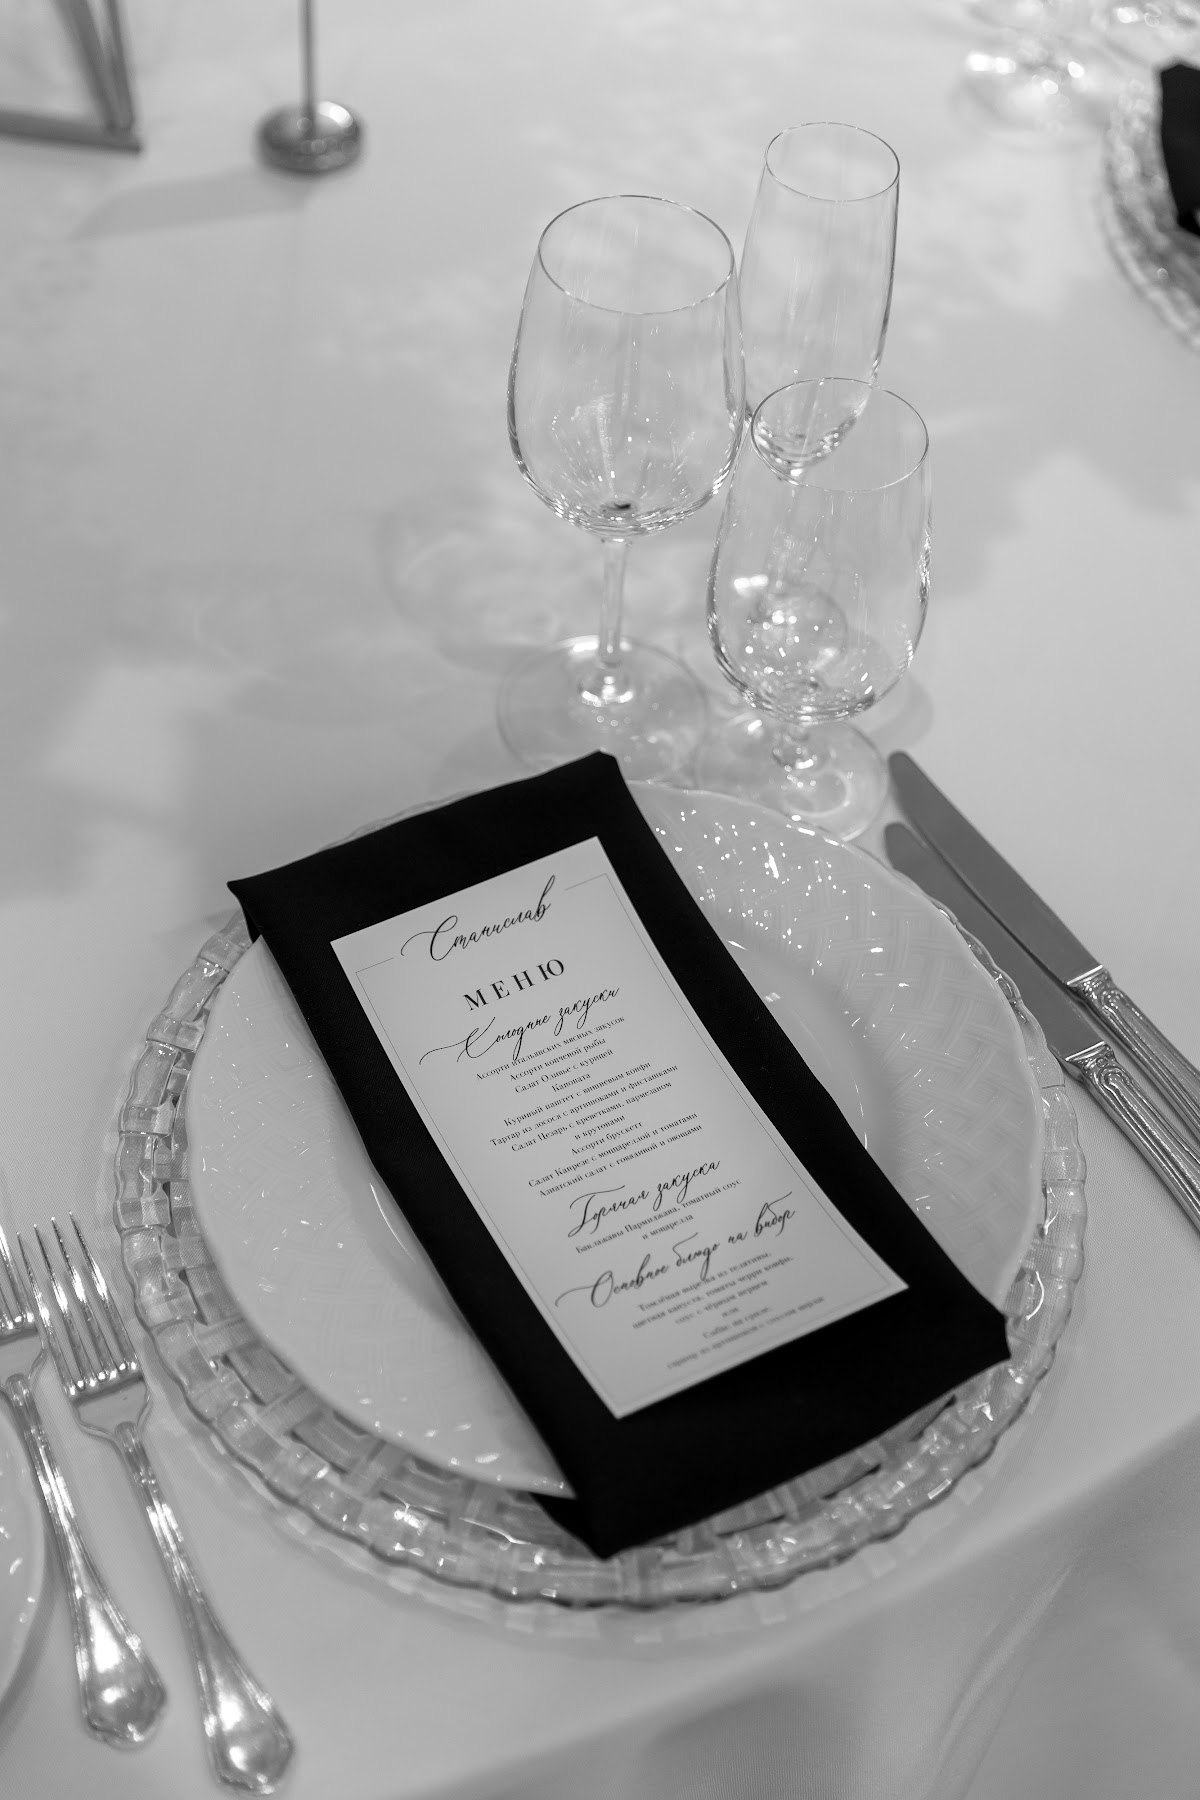 Станислав
МЕНЮ
Холодные закуски
Ассорти итальянских мясных закусок
Ассорти копченой рыбы
Салат Оливье с курицей
Капоната
Куриный паштет с вишневым конфи
Тартар из лосося с артишоками и фисташками
Салат Цезарь с креветками, пармезаном
и крутонами
Ассорти брускетт
Салат Капрезе с моцареллой и томатами
Азиатский салат с говядиной и овощами
Горячая закуска
Баклажаны Пармиджана, томатный соус
и моцарелла
Основное блюдо на выбор
Томлёная вырезка из телятины,
цветная капуста, томаты черри конфи,
соус с чёрным перцем
или
Сибас на гриле,
гарнир из артишоков с соусом